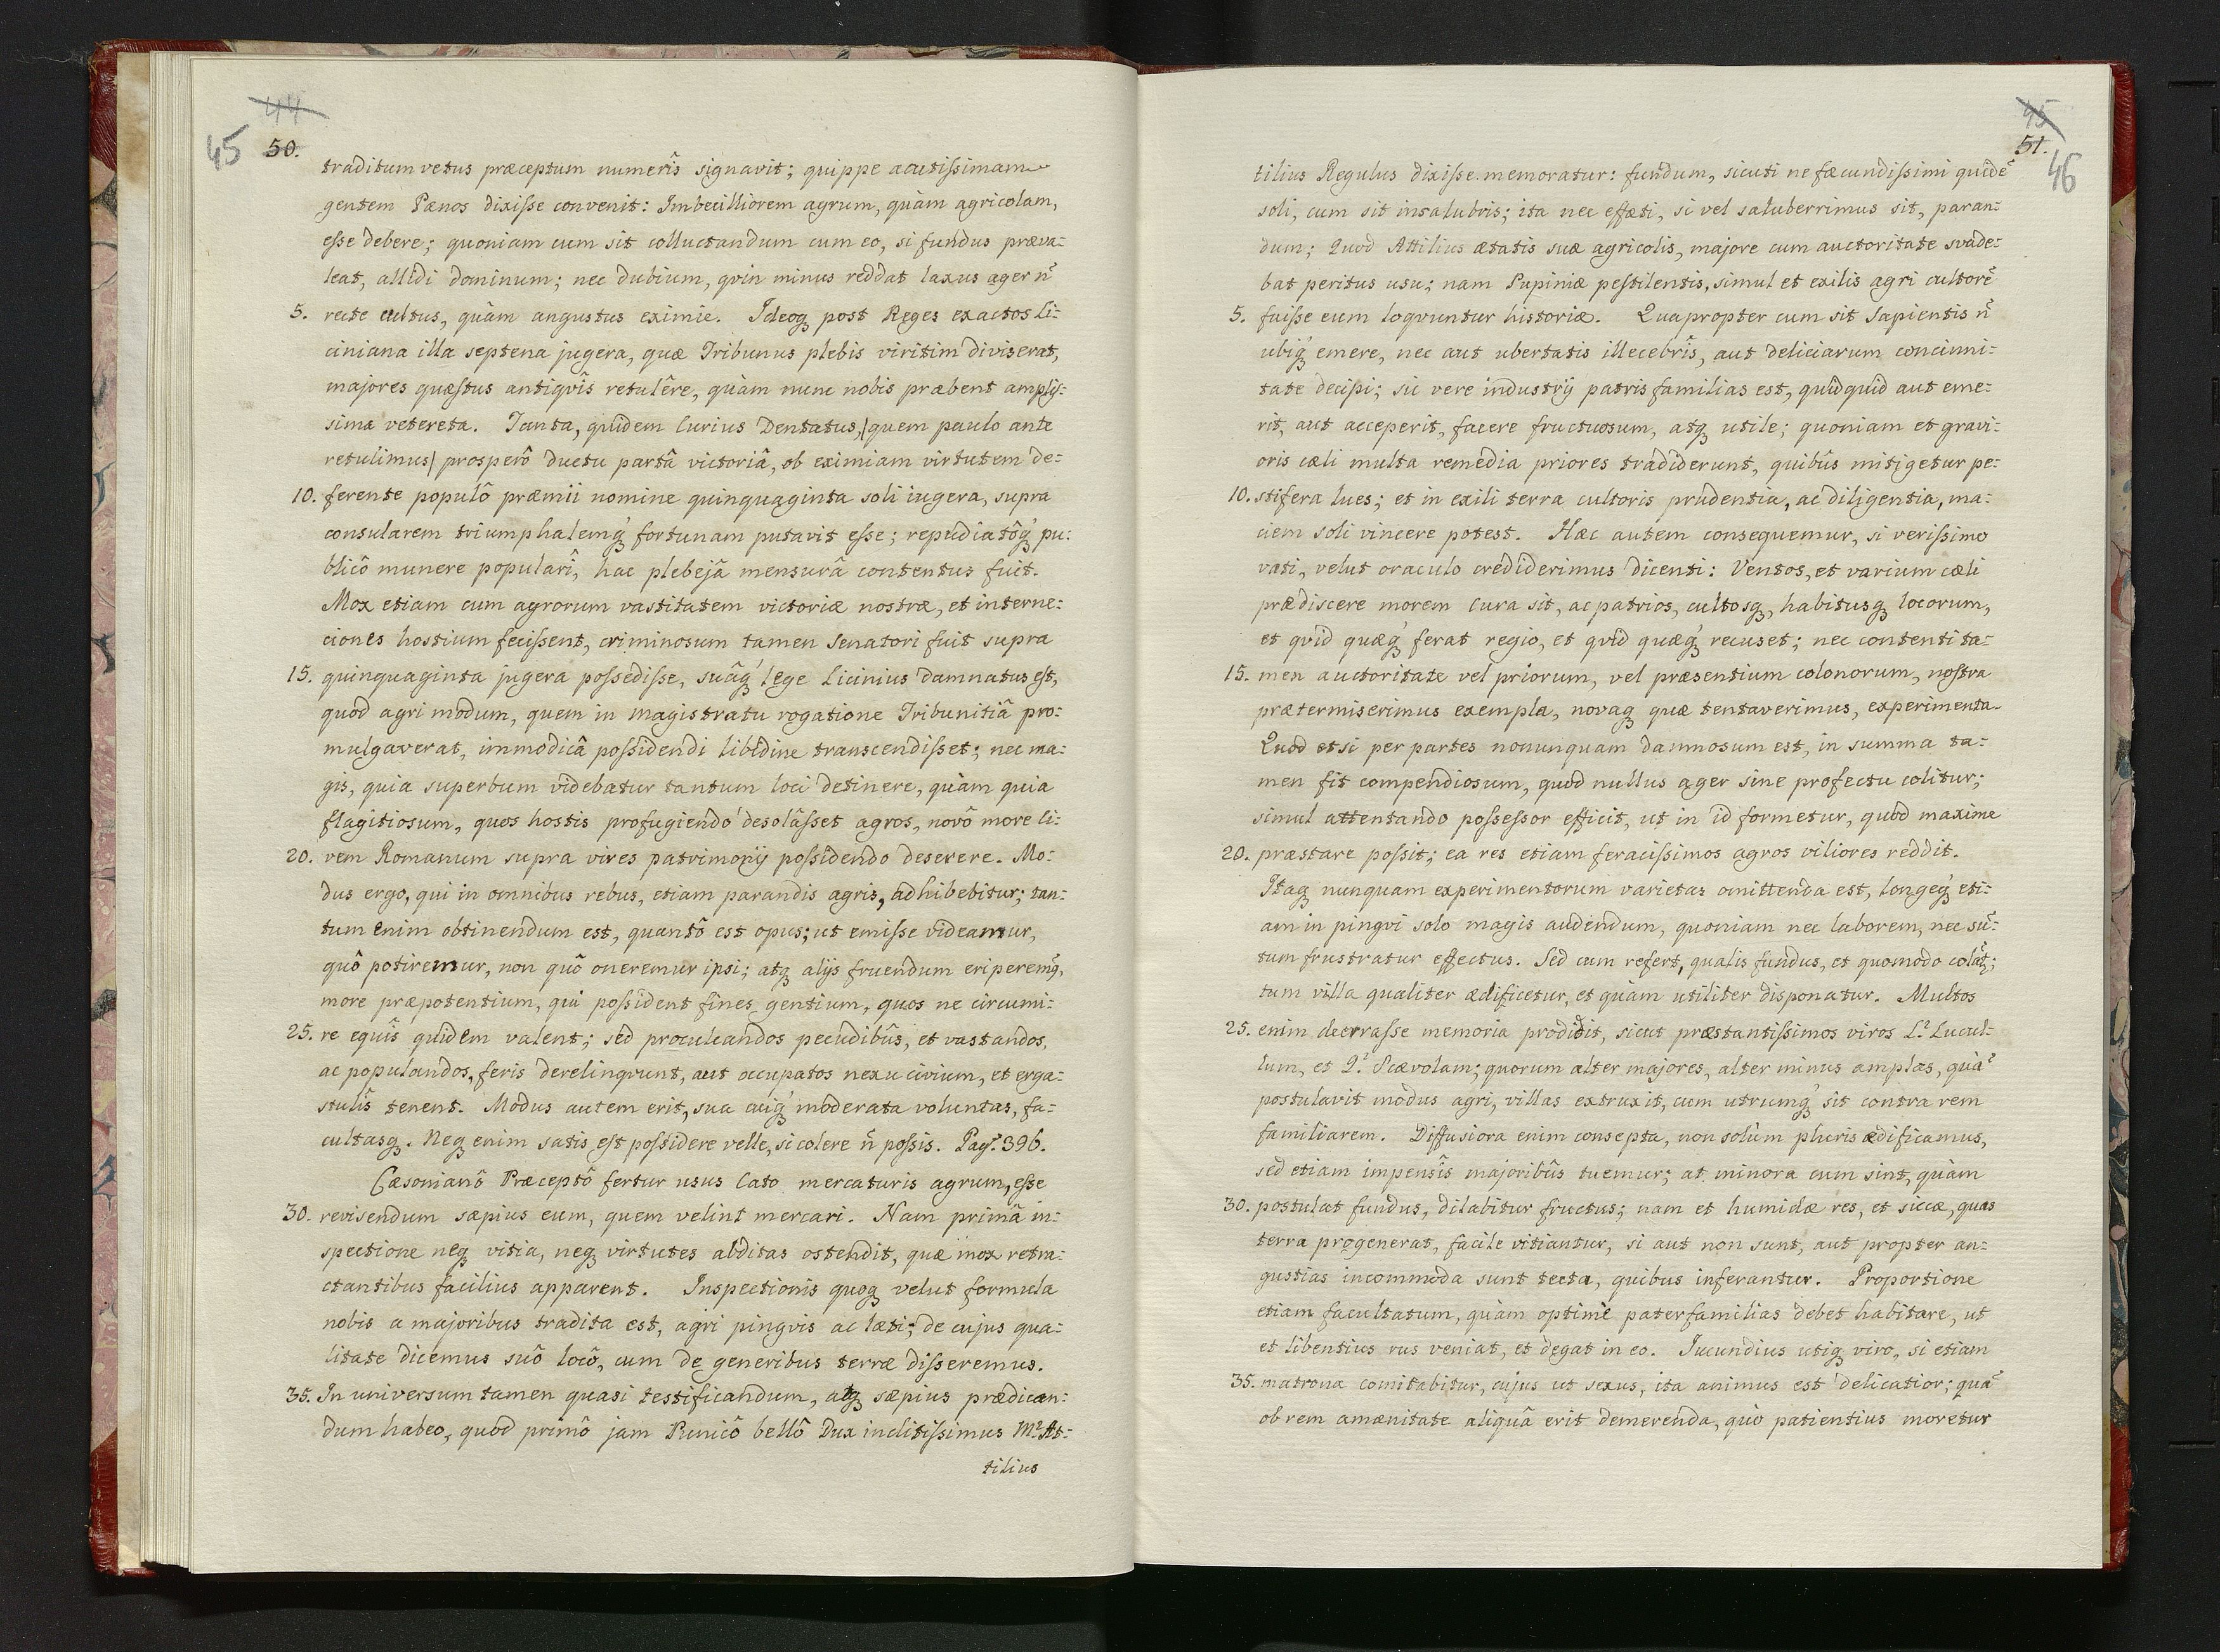 44
45 50.
traditum vetus præceptum numerîs signavit; quippe acutissimam
gentem Pænos dixisse convenit: Imbecilliorem agrum, quàm agricolam,
esse debere; quoniam cum sit colluctandum cum eo, si fundus præva-
leat, allidi dominum; nec dubium, qvin minus reddat laxus ager n̄
5. recte cultus, quàm angustus eximie. Ideoq₃ post Reges exactos Li-
ciniana illa septena jugera, quæ Tribunus plebis viritim diviserat,
majores quæstus antiqvîs retulêre, quàm nunc nobis præbent amplis-
simæ vetereta. Tanta, quidem Curius Dentatus, /quem paulo ante
retulimus/ prosperô ductu partâ victoriâ, ob eximiam virtutem de-
10. ferente populô præmii nomine quinquaginta soli iugera, supra
consularem triumphalemq₃ fortunam putavit esse; repudiatôq₃ pu-
blicô munere popularî, hac plebejâ mensurâ contentus fuit.
Mox etiam cum agrorum vastitatem victoriæ nostræ, et interne-
ciones hostium fecissent, criminosum tamen Senatori fuit supra
15. quinquaginta jugera possedisse, suâq₃ lege Licinius damnatus est,
quod agri modum, quem in magistratu rogatione Tribunitiâ pro-
mulgaverat, immodicâ possidendi libidine transcendisset; nec ma-
gis, quia superbum videbatur tantum loci detinere, quàm quia
flagitiosum, quos hostis profugiendo desolâsset agros, novô more ci-
20. vem Romanum supra vires patrimonij possidendo deserere. Mo-
dus ergo, qui in omnibus rebus, etiam parandis agris, adhibebitur; tan-
tum enim obtinendum est, quantô est opus; ut emisse videamur,
quô potiremur, non quô oneremur ipsi; atq₃ alijs fruendum eriperemq₃,
more præpotentium, qui possident fines gentium, quos ne circumi-
25. re equîs quidem valent; sed proculcandos pecudibûs, et vastandos,
ac populandos, feris derelinqvunt, aut occupatos nexu civium, et erga-
stulîs tenent. Modus autem erit, sua cuiq₃ moderata voluntas, fa-
cultasq₃. Neq₃ enim satis est possidere velle, si colere n̄ possis. Pag. 396.
Cæsonianô Præceptô fertur usus Cato mercaturis agrum, esse
30. revisendum sæpius eum, quem velint mercari. Nam primâ in-
spectione neq₃ vitia, neq₃ virtutes abditas ostendit, quæ mox retra-
ctantibus facilius apparent. Inspectionis quoq₃ velut formula
nobis a majoribus tradita est, agri pingvis ac læti; de cujus qua-
litate dicemus suô locô, cum de generibus terræ disseremus.
35. In universum tamen quasi testificandum, atq₃ sæpius prædican-
dum habeo, quod primô jam Punicô bellô Dux inclitissimus M. At-
tilius
45
51.
46
tilius Regulus dixisse memoratur: fundum, sicuti ne fæcundissimi quidē
soli, cum sit insalubris; ita nec effæti, si vel saluberrimus sit, paran-
dum; Quod Attilius ætatis suæ agricolis, majore cum auctoritate svade-
bat peritus usu; nam Pupiniæ pestilentis, simul et exilis agri cultorē
5. fuisse eum loqvuntur historiæ. Quapropter cum sit sapientis n̄
ubiq₃ emere, nec aut ubertatis illecebrîs, aut deliciarum concinni-
tate decipi; sic vere industrij patris familias est, quidquid aut eme-
rit, aut acceperit, facere fructuosum, atq₃ utile; quoniam et gravi-
oris cæli multa remedia priores tradiderunt, quibûs mitigetur pe-
10. stifera lues; et in exili terra cultoris prudentia, ac diligentia, ma-
ciem soli vincere potest. Hæc autem consequemur, si verissimo
vati, velut oraculo crediderimus dicenti: Ventos, et varium cæli
prædiscere morem Cura sit, ac patrios, cultosq₃, habitusq₃ locorum,
et qvid quæq₃ ferat regio, et qvid quæq₃ recuset; nec contenti ta-
15. men auctoritate vel priorum, vel præsentium colonorum, nostra
prætermiserimus exempla, novaq₃ quæ tentaverimus, experimenta.
Quod etsi per partes nonunquam damnosum est, in summa ta-
men fit compendiosum, quod nullus ager sine profectu colitur;
simul attentando possessor efficit, ut in id formetur, quod maxime
20. præstare possit; ea res etiam feracissimos agros viliores reddit.
Itaq₃ nunquam experimentorum varietas omittenda est, longeq₃ eti-
am in pingvi solo magis audendum, quoniam nec laborem, nec sū-
tum frustratur effectus. Sed cum refert, qualis fundus, et quomodo colat̄;
tum villa qualiter ædificetur, et quàm utiliter disponatur. Multos
25. enim deerrasse memoria prodidit, sicut præstantissimos viros L. Lucul-
lum, et Q. Scævolam; quorum alter majores, alter minus amplas, quā
postulavit modus agri, villas extruxit, cum utrumq₃ sit contra rem
familiarem. Diffusiora enim consepta, non solùm pluris ædificamus,
sed etiam impensîs majoribûs tuemur; at minora cum sint, quàm
30. postulat fundus, dilabitur fructus; nam et humidæ res, et siccæ, quas
terra progenerat, facile vitiantur, si aut non sunt, aut propter an-
gustias incommoda sunt tecta, quibus inferantur. Proportione
etiam facultatum, quàm optimè paterfamilias debet habitare, ut
et libentius rus veniat, et degat in eo. Jucundius utiq₃ viro, si etiam
35. matrona comitabitur, cujus ut sexus, ita animus est delicatior; quā
ob rem amænitate aliquâ erit demerenda, quò patientius moretur